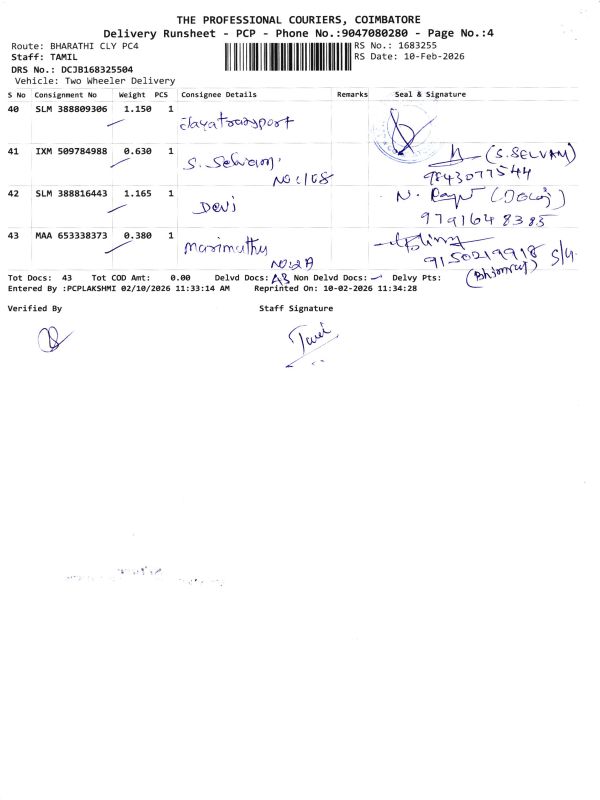 THE PROFESSIONAL COURIERS, COIMBATORE
Delivery Runsheet - PCP - Phone No.:9047080280 - Page No.:4
Route: BHARATHI CLY PC4
RS No.: 1683255
Staff: TAMIL
RS Date: 10-Feb-2026
DRS No.: DCJB168325504
Vehicle: Two Wheeler Delivery
S No Consignment No Weight PCS Consignee Details Remarks Seal & Signature
40 SLM 388809306 1.150 1 Jayatransport
41 IXM 509784988 0.630 1 S. Selvam (S.SELVAM)
NO:1/68 9843077544
42 SLM 388816443 1.165 1 Devi N.
9791648385
43 MAA 653338373 0.380 1 Marimuthu
NO:2A 9150219918
Tot Docs: 43 Tot COD Amt: 0.00 Delvd Docs: 43 Non Delvd Docs: - Delvy Pts:
Entered By :PCPLAKSHMI 02/10/2026 11:33:14 AM Reprinted On: 10-02-2026 11:34:28
Verified By Staff Signature